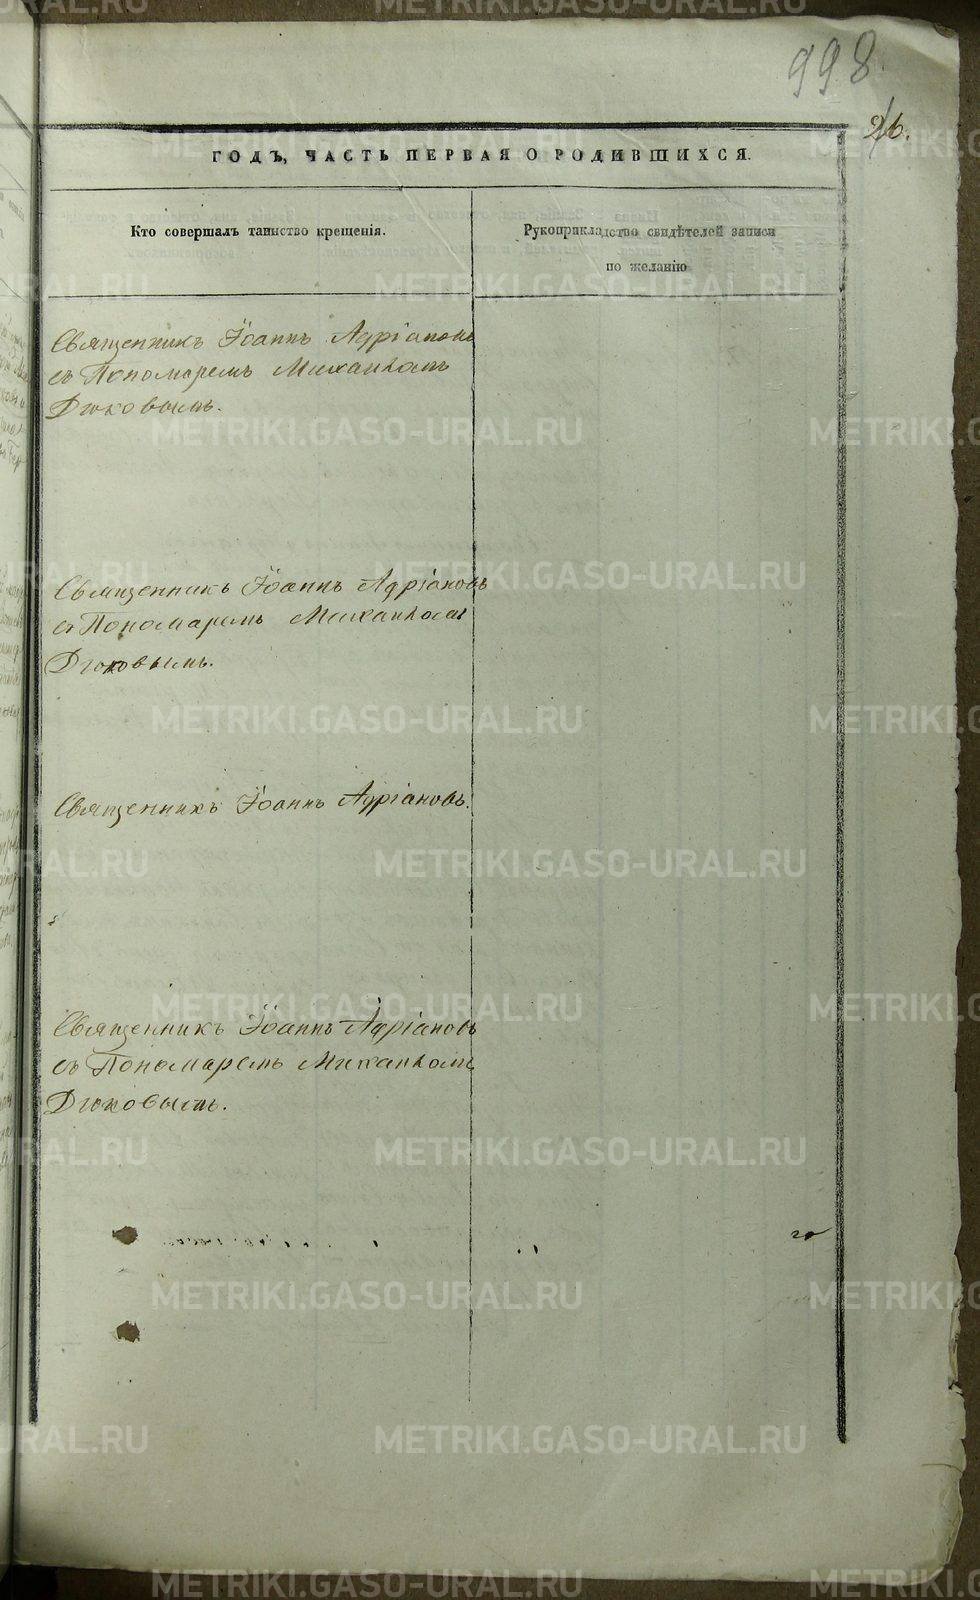 998
26.
ГОДЪ, ЧАСТЬ ПЕРВАЯ О РОДИВШИХСЯ.
Кто совершалъ таинство крещенія.
Рукоприкладство свидѣтелей записи
по желанію
Священникъ Іоаннъ Адріановъ
съ Пономаремъ Михаиломъ
Дюковымъ.
Священникъ Іоаннъ Адріановъ
съ Пономаремъ Михаиломъ
Дюковымъ.
Священникъ Іоаннъ Адріановъ.
Священникъ Іоаннъ Адріановъ
съ Пономаремъ Михаиломъ
Дюковымъ.
METRIKI.GASO-URAL.RU